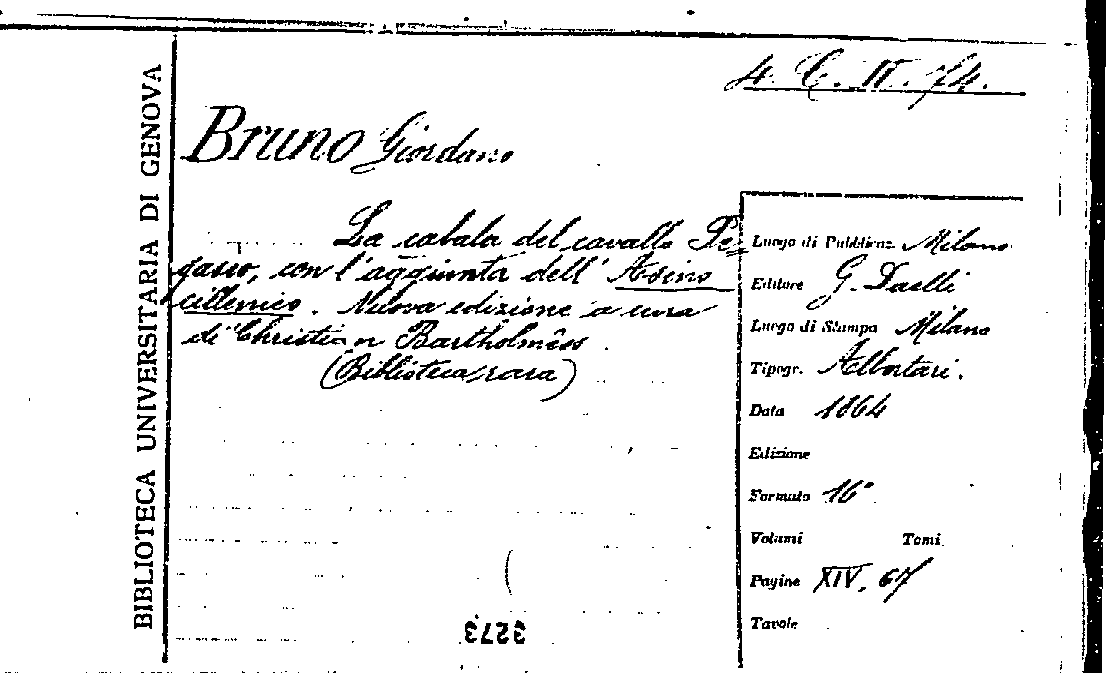 4. C. II. 74.
BIBLIOTECA UNIVERSITARIA DI GENOVA
Bruno Giordano
La cabala del cavallo Pe=
gaseo, con l'aggiunta dell' Asino
cillenico. Nuova edizione a cura
di Christian Bartholmèss.
(Biblioteca rara)
Luogo di Pubblicaz. Milano
Editore G. Daelli
Luogo di Stampa Milano
Tipogr. Albertari.
Data 1864
Edizione
Formato 16°
Volumi Tomi
Pagine XIV, 67
Tavole
3273